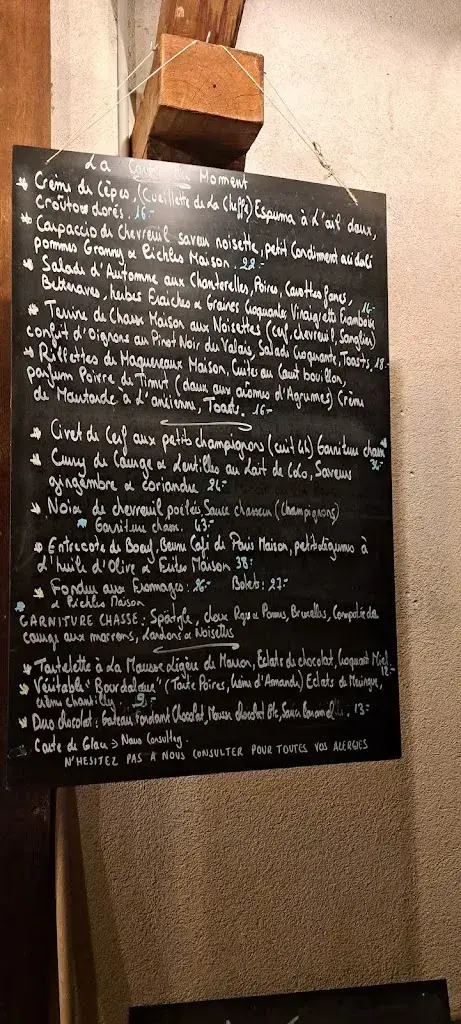 La Carte du Moment
Crème de Cèpes, (Cueillette de La Cheffe) Espuma à L'ail doux,
croûtons dorés. 16.-
Carpaccio de Chevreuil saveur noisette, petit Condiment acidulé
pommes Granny & Pickles Maison. 22.-
Salade d'Automne aux Chanterelles, Poires, Carottes fanes, 16.-
Betteraves, herbes Fraîches & Graines Croquante Vinaigrette Framboise
Terrine de Chasse Maison aux Noisettes (cerf, chevreuil, Sanglier)
confit d'Oignons au Pinot Noir du Valais, Salade Croquante, Toasts. 18.-
Rillettes de Maquereaux Maison, Cuites au Court bouillon,
parfum Poivre de Timut (doux aux arômes d'Agrumes) Crème
de Moutarde à L'ancienne, Toasts. 16.-
Civet de Cerf aux petits champignons (cuit 4h) Garniture chasse
34.-
Curry de Courge & Lentilles au Lait de Coco, Saveurs
gingembre & coriandre 24.-
Noix de chevreuil poêlés Sauce chasseur (Champignons)
Garniture chasse. 43.-
Entrecote de Boeuf, Beurre Café de Paris Maison, petits légumes à
d'huile d'Olive & Frites Maison 38.-
Fondue aux Fromages: 26.- Bolets: 27.-
& Pickles Maison
GARNITURE CHASSE: Spätzle, choux Rouge & Pommes, Bruxelles, Compotée de
courge aux marrons, Lardons & Noisettes
Tartelette à La Mousse légère de Marron, Eclats de chocolat, Croquant Miel
12.-
Véritable "Bourdaloue" (Tarte Poires, Crème d'Amande) Eclats de Meringue,
crème chantilly 9.-
Duo chocolat: Gateau Fondant Chocolat, Mousse chocolat Lait, Sauce Caramel. 13.-
Carte de Glace > Nous Consulter.
N'HESITEZ PAS À NOUS CONSULTER POUR TOUTES VOS ALERGIES